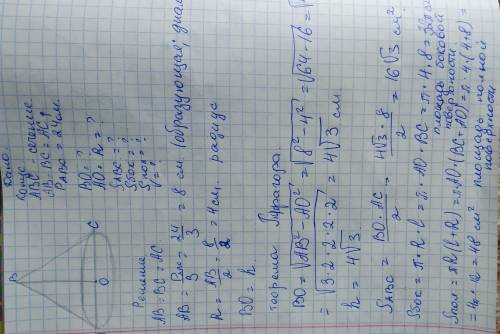 Дано:
Конус
ABC - сечение
AB = BC = AC
P ABC = 24 см.
BO = ?
AO = R = ?
S ABC = ?
S бок = ?
S пол = ?
V = ?
B
C
O
Решение
AB = BC = AC
AB = P ABC / 3 = 24 / 3 = 8 см (образующая; диам
R = AB / 2 = 8 / 2 = 4 см. радиус
BO = h.
Теорема Пифагора.
BO = √AB² - AO² = √8² - 4² = √64 - 16 = √
= √3·2·2·2·2 = 4√3 см
h = 4√3
S ABC = BO · AC / 2 = 4√3 · 8 / 2 = 16√3 см²
S бок = π·R·l = π·AO·BC = π·4·8 = 32π
площадь боковой
поверхности
S пол = πR(l+R) = π·AO·(BC+AO) = π·4·(4+8) =
= 4π·12 = 48 см² площадь полной
поверхности